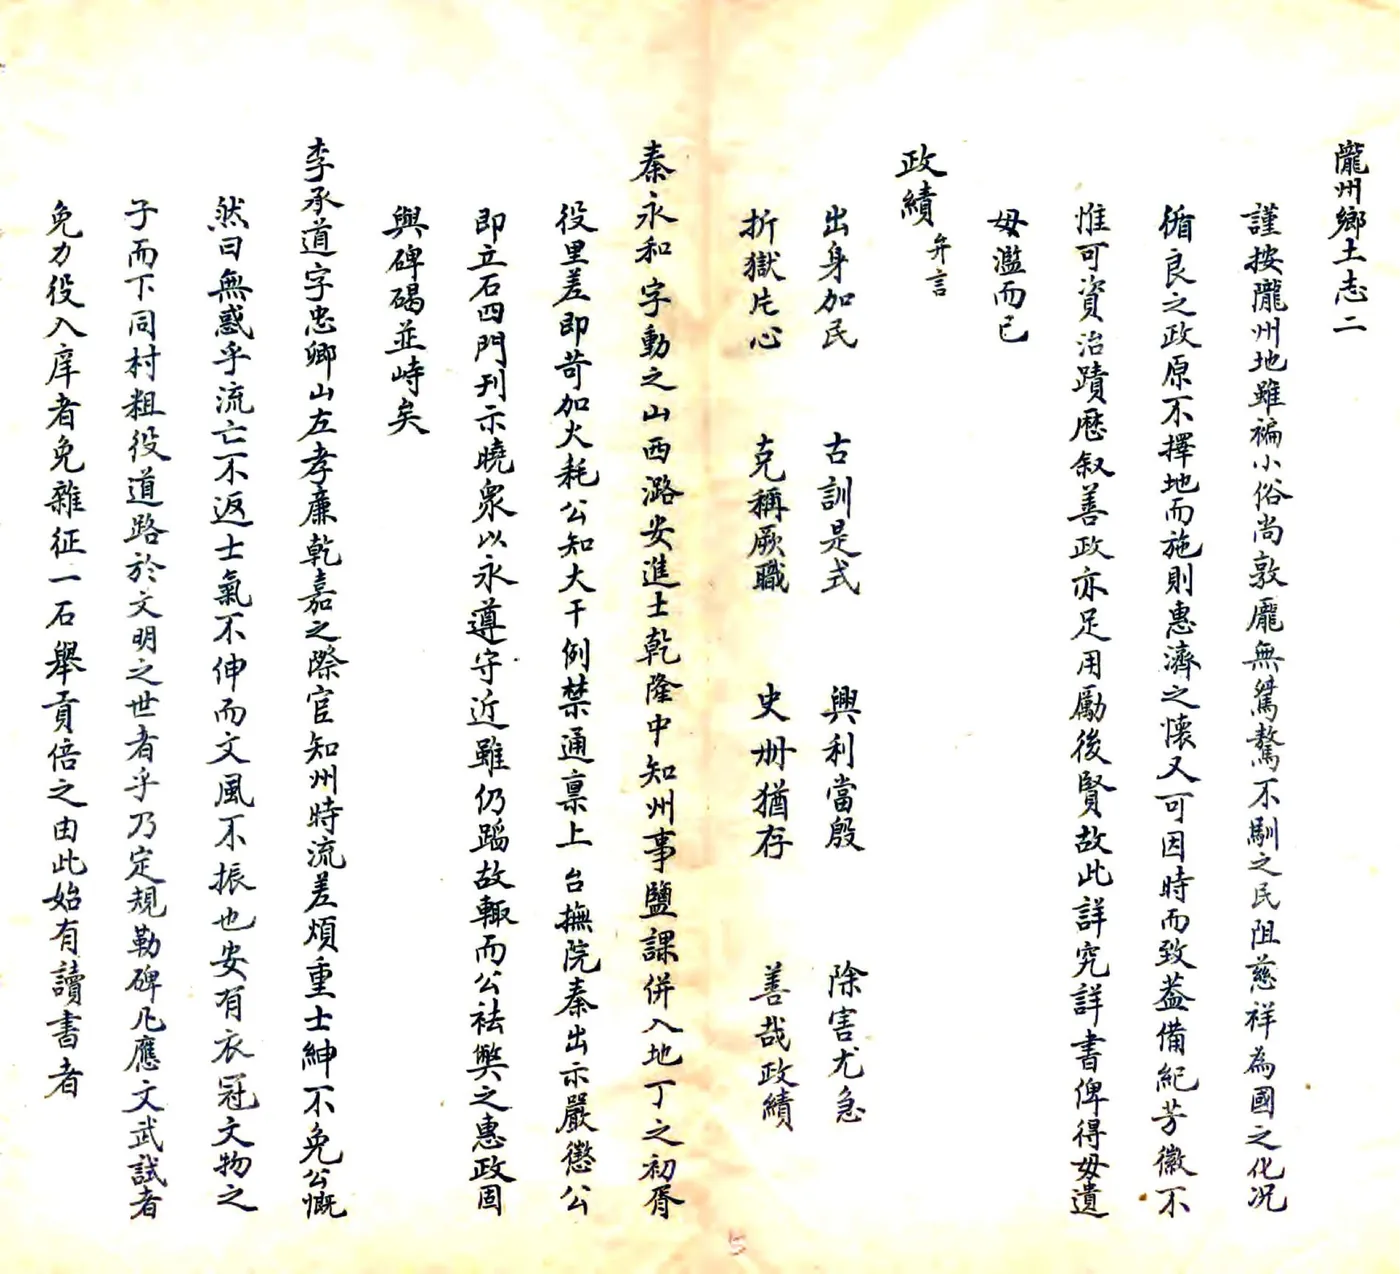 隴州鄉土志二
謹按隴州地雖褊小俗尚敦龐無駑驁不馴之民阻慈祥為國之化况
循良之政原不擇地而施則惠濟之懷又可因時而致葢備紀芳徽不
惟可資治蹟歷叙善政亦足用勵後賢故此詳究詳書俾得毋遺
毋濫而已
政績 弁言
出身加民 古訓是式 興利當殷 除害尤急
折獄片心 克稱厥職 史冊猶存 善哉政績
秦永和字動之山西潞安進士乾隆中知州事鹽課併入地丁之初胥
役里差即苛加火耗公知大干例禁通禀上台撫院秦出示嚴懲公
即立石四門刊示曉眾以永遵守近雖仍蹈故轍而公祛獘之惠政固
與碑碣並峙矣
李承道字忠卿山左孝廉乾嘉之際官知州時流差煩重士紳不免公慨
然曰無惑乎流亡不返士氣不伸而文風不振也安有衣冠文物之
子而下同村粗役道路於文明之世者乎乃定規勒碑凡應文武試者
免力役入庠者免雜征一石舉貢倍之由此始有讀書者